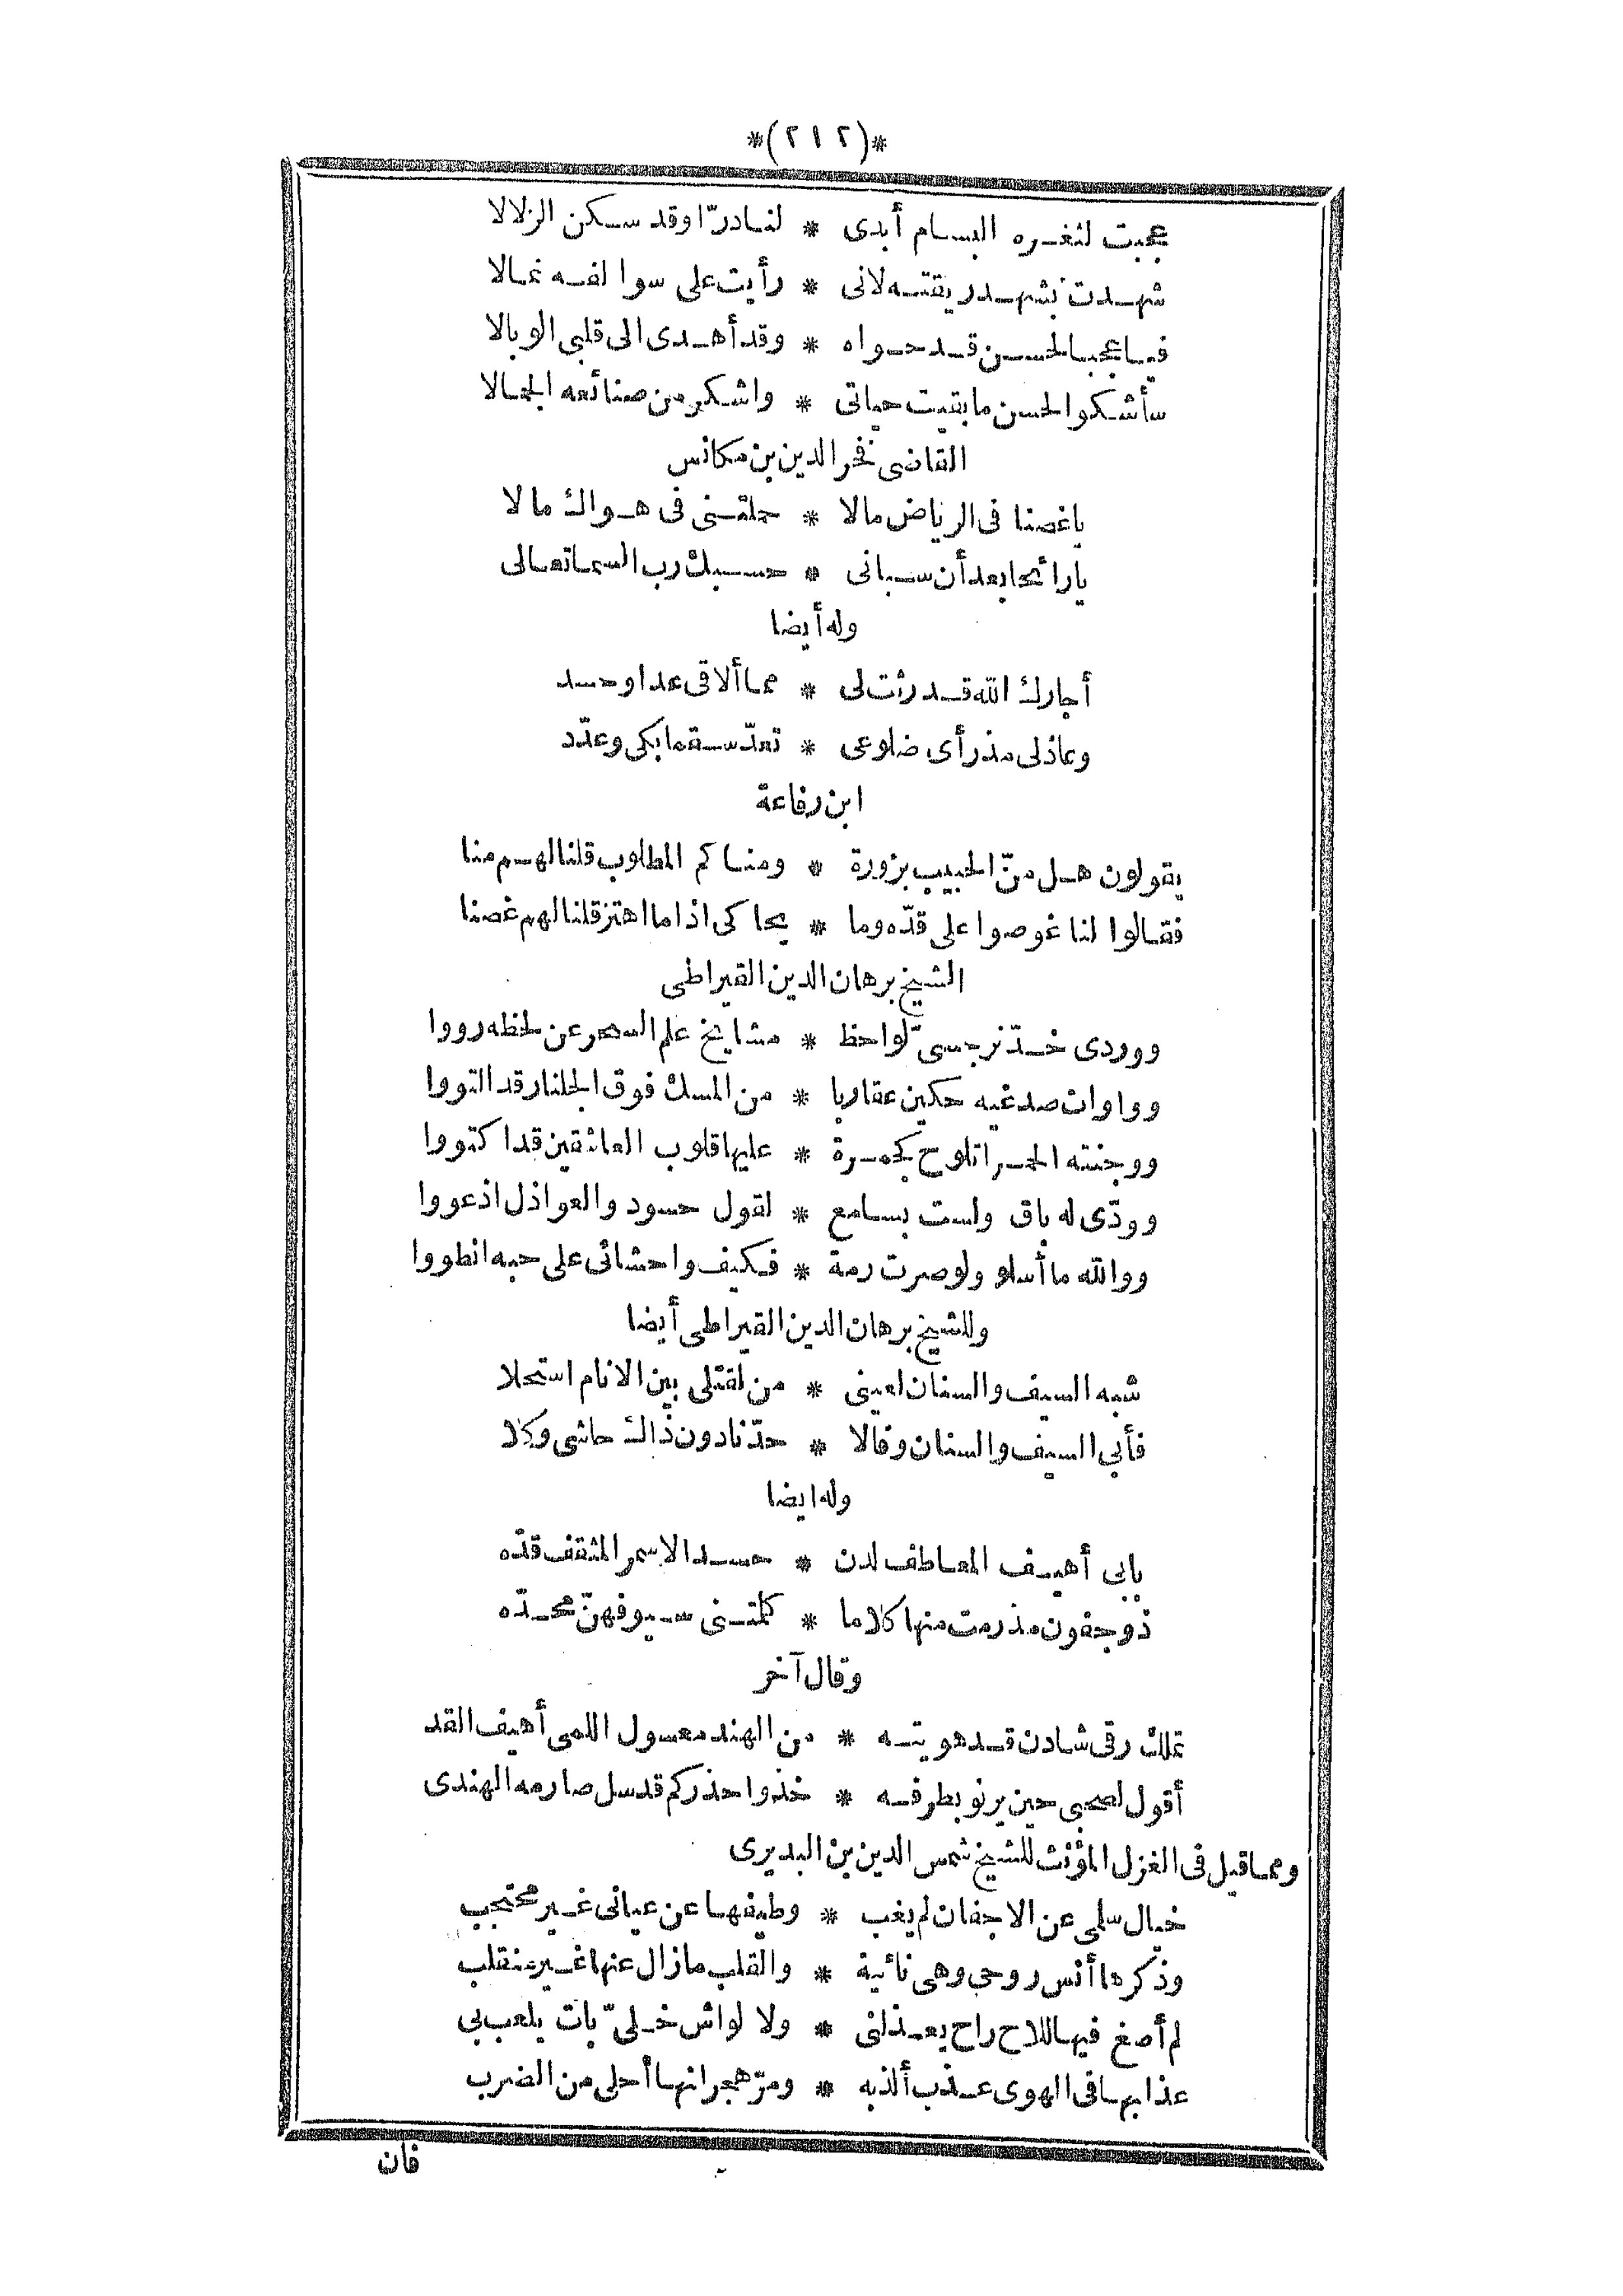 *(٢١٢)*
عجبت لثغره البسام أبدى * لنا درّا وقد سكن الزلالا
شهدت بشهد ريقته لانى * رأيت على سوالفه نمالا
فيا عجبا لحسن قد حواه * وقد أهدى الى قلبى الوبالا
سأشكو الحسن ما بقيت حياتى * واشكر من صنائعه الجمالا
القاضى فخر الدين بن مكانس
ياغصنا فى الرياض مالا * حملتنى فى هواك مالا
يارائحا بعد أن سبانى * حسبك رب السما تعالى
وله أيضا
أجارك الله قد رثت لى * مما ألاقى عدا وحسد
وعاذلى مذ رأى ضلوعى * تعدّ سقما بكى وعدّد
ابن رفاعة
يقولون هل منّ الحبيب بزورة * ومناكم المطلوب قلنا لهم منا
فقالوا لنا غوصوا على قدّه وما * يحاكى اذا ما اهتز قلنا لهم غصنا
الشيخ برهان الدين القيراطى
ووردى خدّ نرجسىّ لواحظ * مشايخ علم السحر عن لحظه رووا
وواوات صدغيه حكين عقاربا * من المسك فوق الجلنار قد التووا
ووجنته الحمرا تلوح كجمرة * عليها قلوب العاشقين قد اكتووا
وودّى له باق ولست بسامع * لقول حسود والعواذل اذ عووا
ووالله ما أسلو ولو صرت رمة * فكيف واحشائى على حبه انطووا
وللشيخ برهان الدين القيراطى أيضا
شبه السيف والسنان لعينى * من لقتلى بين الانام استحلا
فأبى السيف والسنان وقالا * حدّنا دون ذاك حاشى وكلا
وله ايضا
بابى أهيف المعاطف لدن * حسد الاسمر المثقف قدّه
ذو جفون مذ رمت منها كلاما * كلمتنى سيوفهنّ محدّه
وقال آخر
تملك رقى شادن قد هويته * من الهند معسول اللمى أهيف القد
أقول لصحبى حين يرنو بطرفه * خذوا حذركم قد سل صارمه الهندى
ومما قيل فى الغزل المؤنث للشيخ شمس الدين بن البديرى
خيال سلمى عن الاجفان لم يغب * وطيفها عن عيانى غير محتجب
وذكرها أنس روحى وهى نائية * والقلب ما زال عنها غير منقلب
لم أصغ فيها للاح راح يعذلنى * ولا لواش خلىّ بات يلعب بى
عذابها فى الهوى عذب ألذ به * ومرّ هجرانها أحلى من الضرب
فان